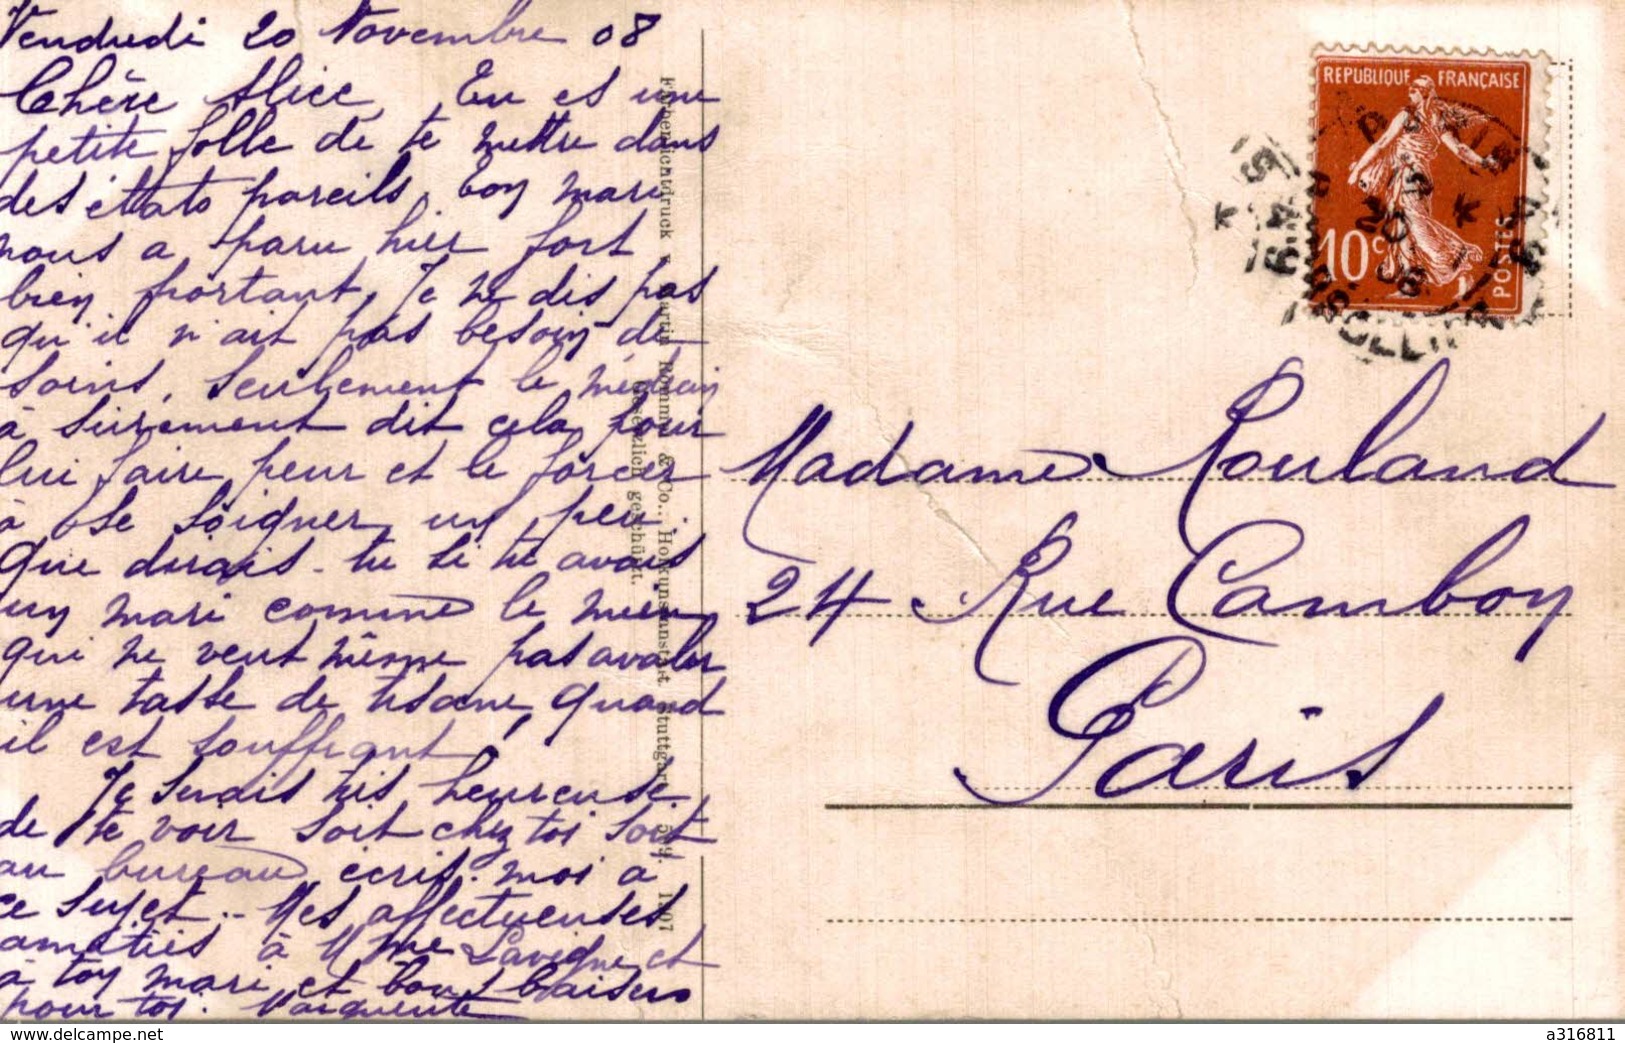 Vendredi 20 Novembre 08
Chère Alice, Tu es une
petite folle de te mettre dans
des états pareils, Ton mari
nous a paru hier fort
bien portant, Je ne dis pas
qu'il n'ait pas besoin de
soins, seulement le médecin
à surement dit cela pour
lui faire peur et le forcer
à se soigner un peu.
Que dirais-tu si tu avais
un mari comme le mien
qui ne veut même pas avaler
une tasse de tisane, quand
il est souffrant,
Je serais très heureuse
de te voir soit chez toi soit
au bureau, écris-moi à
ce sujet.. Mes affectueuses
amitiés à Mme Lavigne et
à ton mari et bons baisers
pour toi. Marguerite
Farbenlichtdruck v. Martin Rommel & Co., Hofkunstanstalt, Stuttgart. 1907
Gesetzlich geschützt.
REPUBLIQUE FRANÇAISE
10c
POSTES
PARIS
Madame Rouland
24 Rue Cambon
Paris
www.delcampe.net
a316811